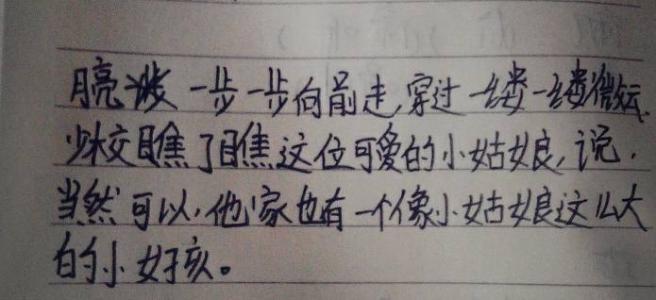 月亮一步一步向前走,穿过一缕一缕微云.
少校瞧了瞧这位可爱的小姑娘,说.
当然可以,他家也有一个像小姑娘这么大
的小女孩。